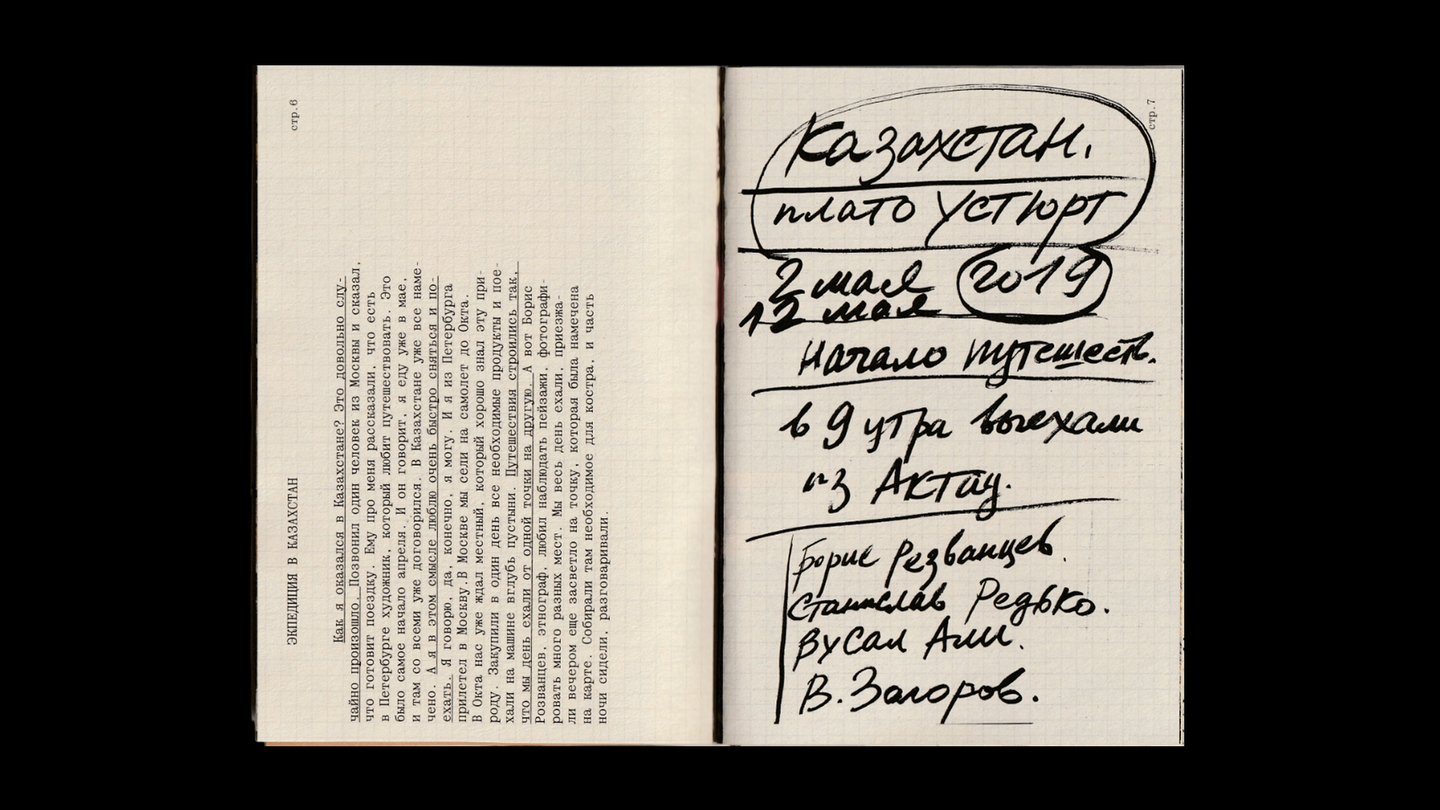 стр.6
ЭКПЕДИЦИЯ В КАЗАХСТАН
Как я оказался в Казахстане? Это довольно слу-
чайно произошло. Позвонил один человек из Москвы и сказал,
что готовит поездку. Ему про меня рассказали, что есть
в Петербурге художник, который любит путешествовать. Это
было самое начало апреля. И он говорит, я еду уже в мае,
и там со всеми уже договорился. В Казахстане уже все наме-
чено. А я в этом смысле люблю очень быстро сняться и по-
ехать. Я говорю, да, конечно, я могу. И я из Петербурга
прилетел в Москву.В Москве мы сели на самолет до Окта.
В Окта нас уже ждал местный, который хорошо знал эту при-
роду. Закупили в один день все необходимые продукты и пое-
хали на машине вглубь пустыни. Путешествия строились так,
что мы день ехали от одной точки на другую. А вот Борис
Розванцев, этнограф, любил наблюдать пейзажи, фотографи-
ровать много разных мест. Мы весь день ехали, приезжа-
ли вечером еще засветло на точку, которая была намечена
на карте. Собирали там необходимое для костра, и часть
ночи сидели, разговаривали.
стр.7
Казахстан.
плато Устюрт
2 мая 2019
12 мая
Начало путешеств.
в 9 утра выехали
из Актау.
Борис Резванцев.
Станислав Редько.
Вусал Али.
В. Загоров.